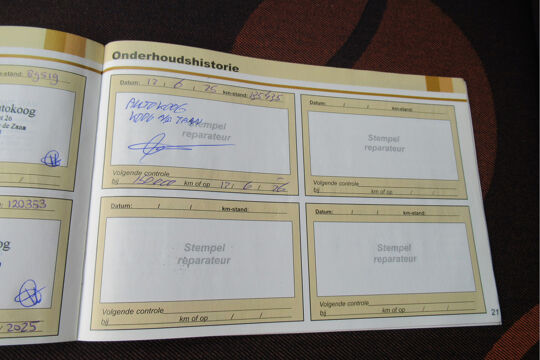 -stand: 89519
tokoog
Onderhoudshistorie
Datum: 12 / 6 / 25 km-stand: 135435
AUTOKOOG
KOOG A/D ZAAN
Stempel
reparateur
Volgende controle
bij 150000 km of op 12 / 6 / 26
Datum: / / km-stand:
Stempel
reparateur
Volgende controle
bij km of op / /
120353
og
2025
Datum: / / km-stand:
Stempel
reparateur
Volgende controle
bij km of op / /
Datum: / / km-stand:
Stempel
reparateur
Volgende controle
bij km of op / /
21